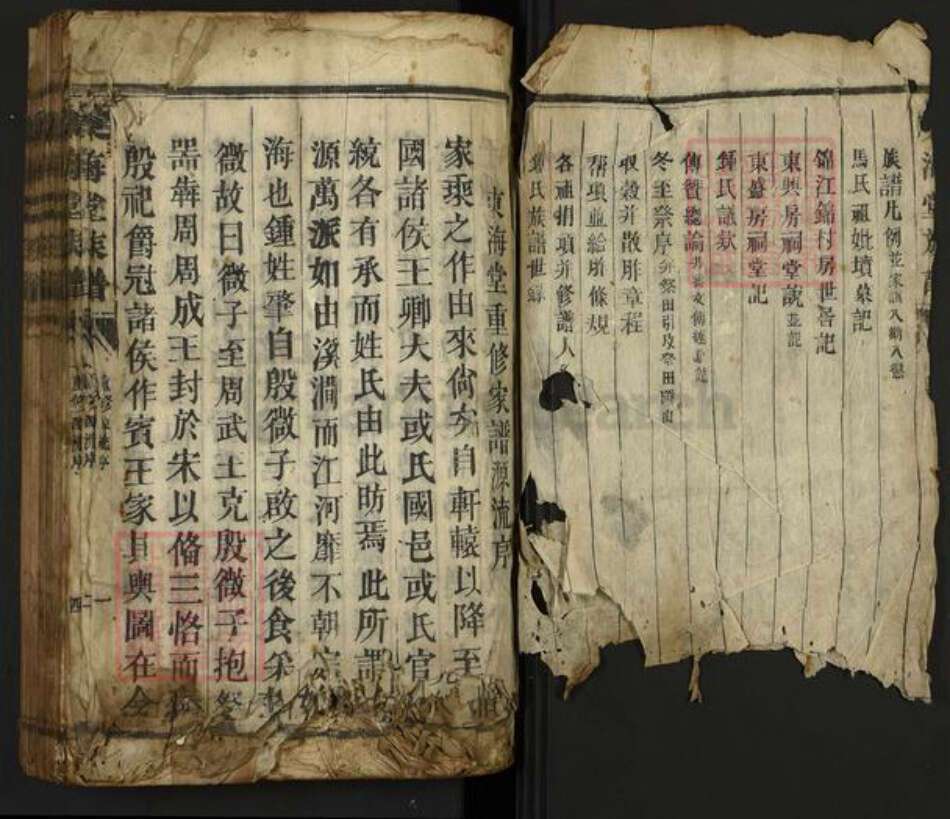 族譜凡例並家訓八勸八懲
馬氏祖妣墳墓記
錦江錦村房世居記
東興房祠堂說並記
東盛房祠堂記
鍾氏議款
傳贊總論
冬至祭序
收穀并散胙章程
幫項並給胙條規
各祖捐項并修譜人
鍾氏族譜世錄
東海堂重修家譜源流序
家乘之作由來尙矣自軒轅以降至
國諸侯王卿大夫或氏國邑或氏官
統各有承而姓氏由此昉焉此所謂
源萬派如由溪澗而江河靡不朝宗
海也鍾姓肇自殷微子啟之後食采
微故曰微子至周武王克殷微子抱祭
器犇周周成王封於宋以備三恪而
殷祀爵冠諸侯作賓王家其輿圖在今
海堂族譜